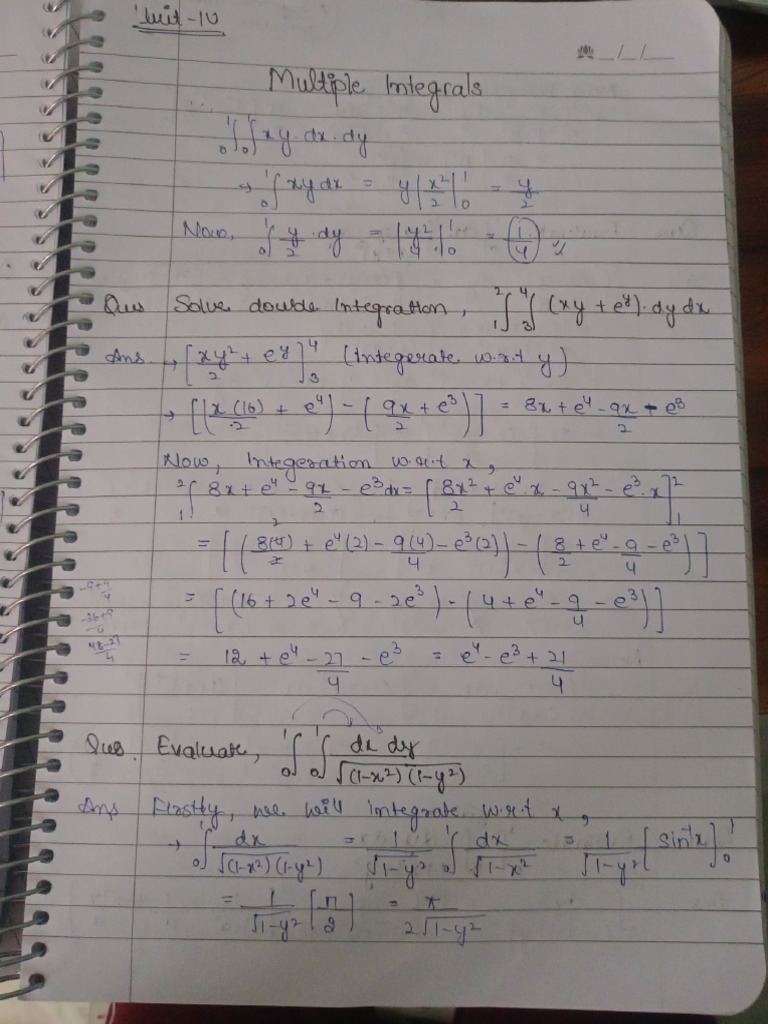 Unit-IV
_/_/_
Multiple Integrals
₀∫¹ ₀∫¹ xy.dx.dy
→ ₀∫¹ xy dx = y|x²/2|₀¹ = y/2
Now, ₀∫¹ y/2 .dy = |y²/4|₀¹ = 1/4
Ques Solve double Integration, ₁∫² ₃∫⁴ (xy + e^y).dy dx
Ans. → [xy²/2 + e^y]₃⁴ (Integerate w.r.t y)
→ [(x(16)/2 + e⁴) - (9x/2 + e³)] = 8x + e⁴ - 9x/2 - e³
Now, Integeration w.r.t x,
₁∫² 8x + e⁴ - 9x/2 - e³ dx = [8x²/2 + e⁴.x - 9x²/4 - e³.x]₁²
= [(8(4)/2 + e⁴(2) - 9(4)/4 - e³(2)) - (8/2 + e⁴ - 9/4 - e³)]
= [(16 + 2e⁴ - 9 - 2e³) - (4 + e⁴ - 9/4 - e³)]
-9+9/4
-36+9/4
48-27/4
= 12 + e⁴ - 27/4 - e³ = e⁴ - e³ + 21/4
Ques. Evaluate, ₀∫¹ ₀∫¹ dx dy/√(1-x²)(1-y²)
Ans Firstly, we will integrate w.r.t x,
→ ₀∫¹ dx/√(1-x²)(1-y²) = 1/√1-y² ₀∫¹ dx/√1-x² = 1/√1-y² [sin⁻¹x]₀¹
= 1/√1-y² [π/2] = π/2√1-y²